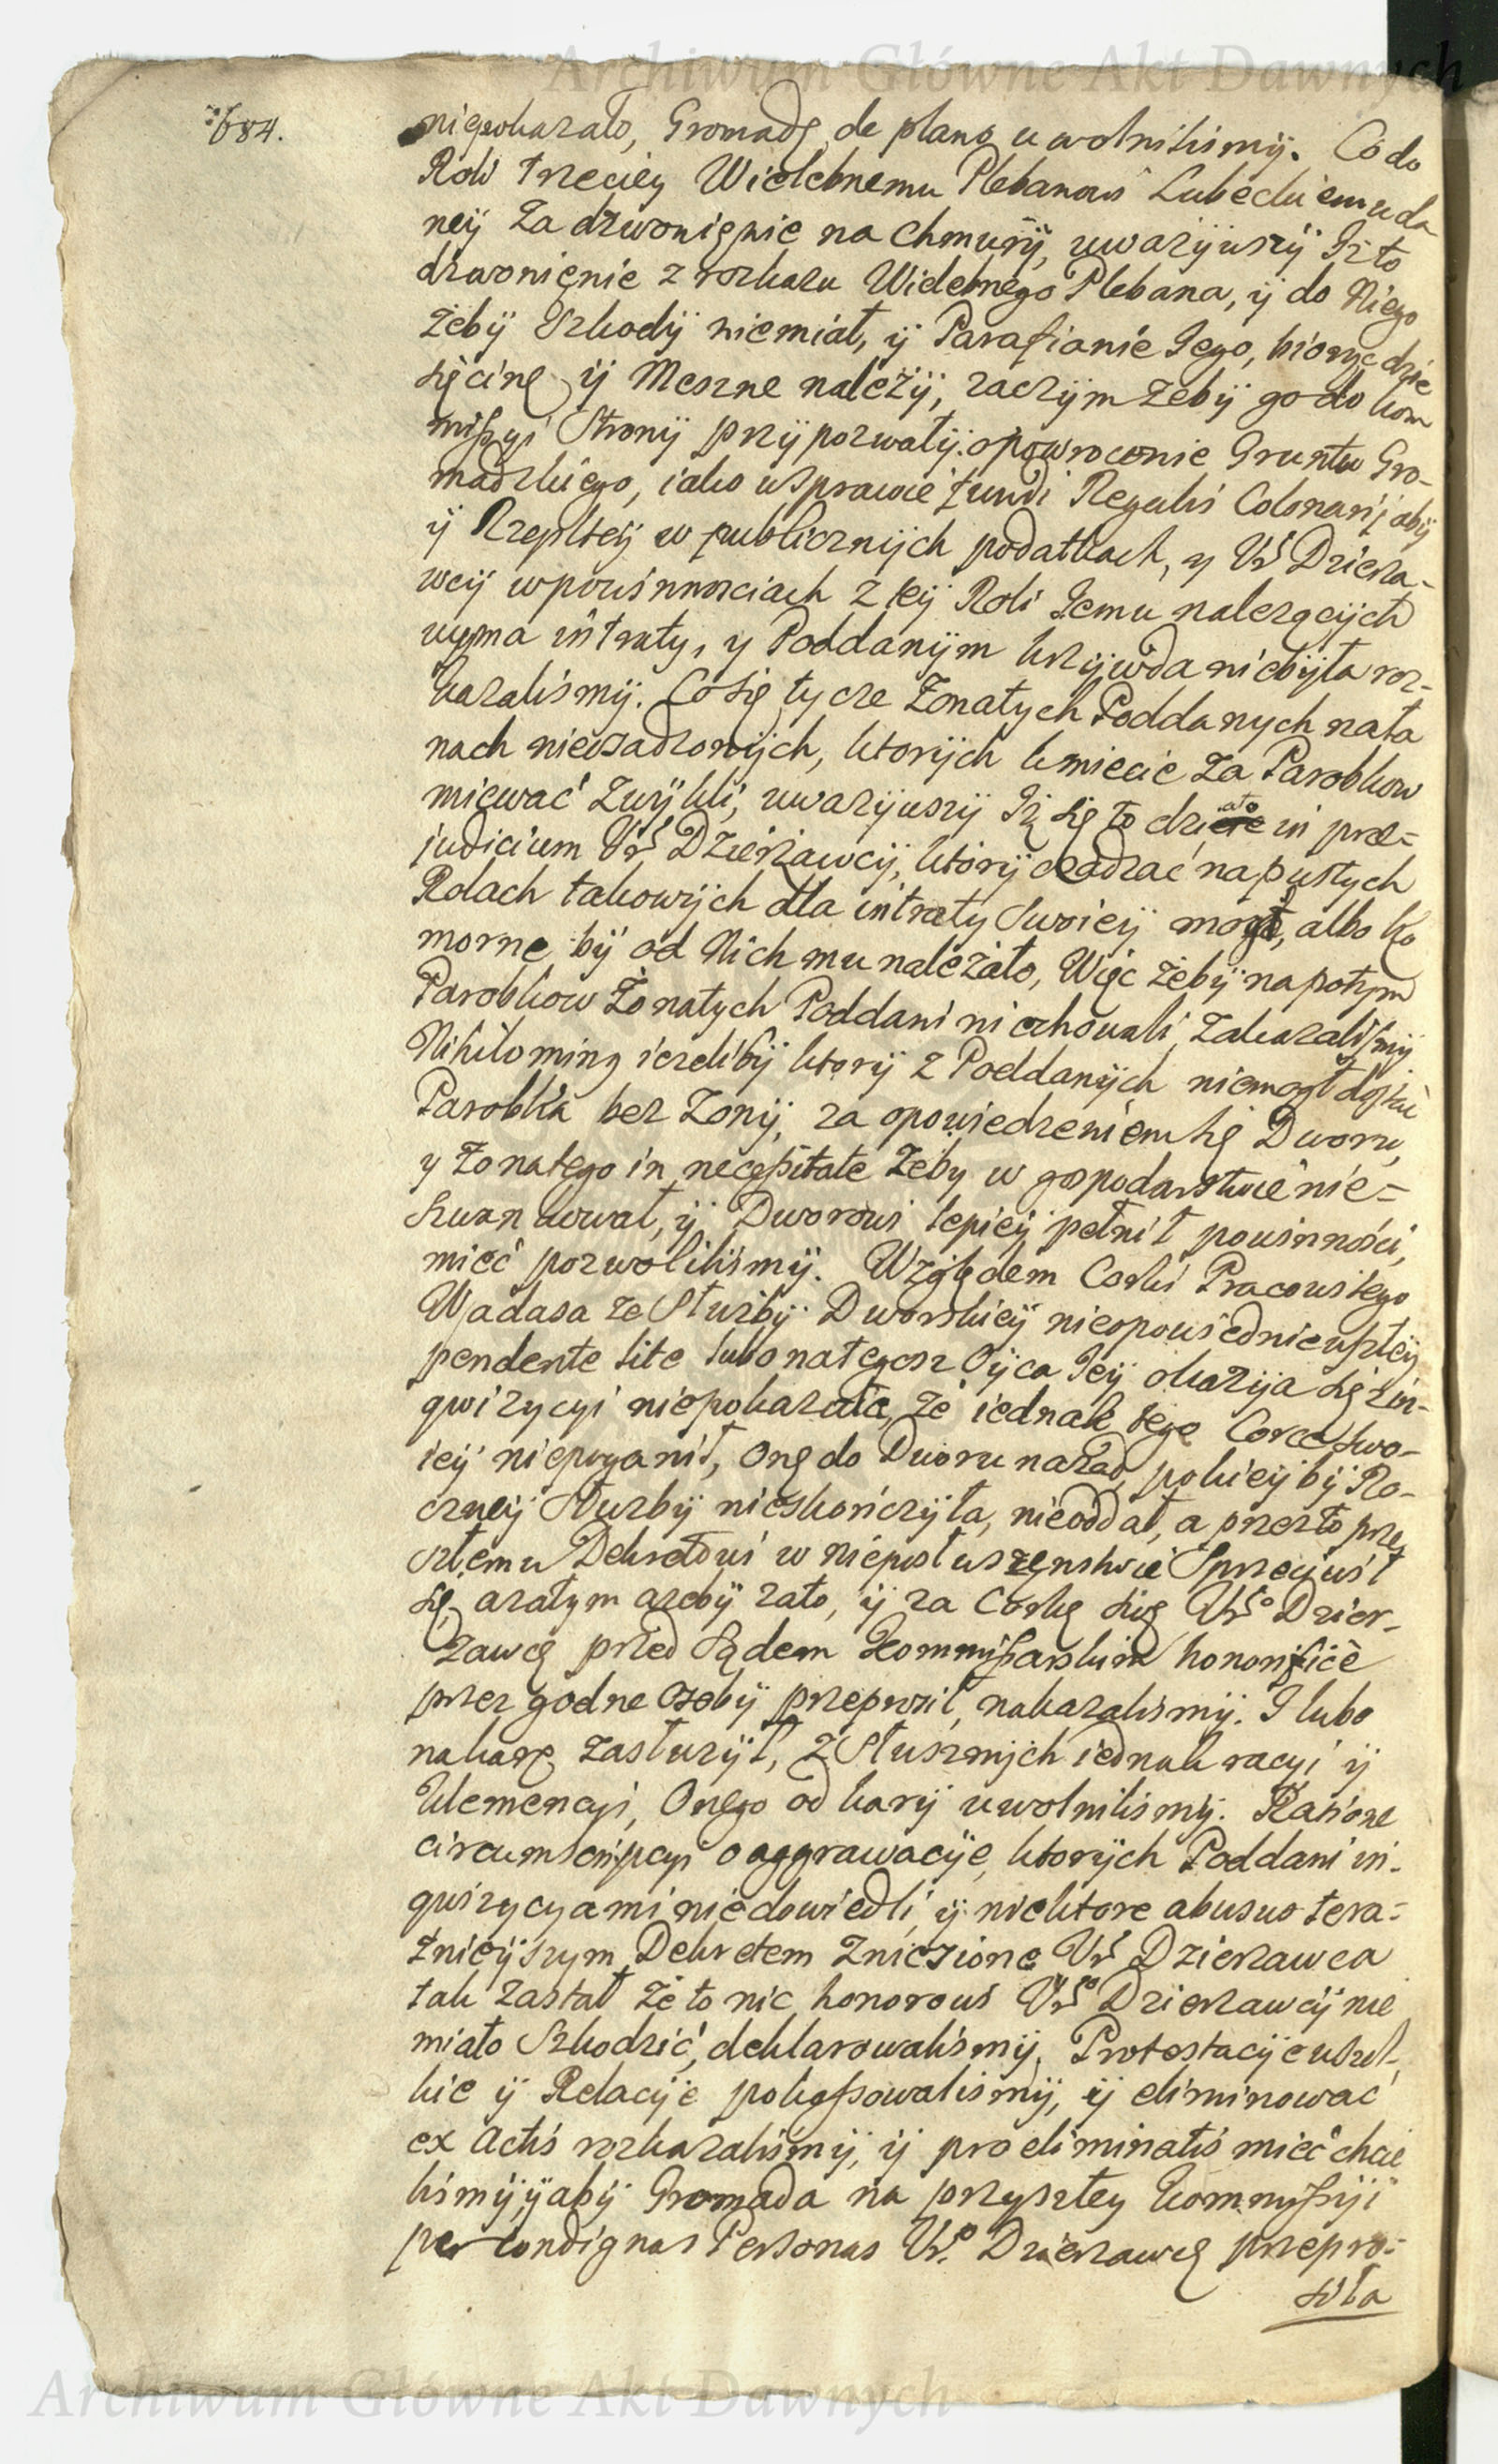 Archiwum Główne Akt Dawnych
684.
niepokazało, Gromadę de plano uwolniliśmÿ. Co do
Roli trzeciey Wielebnemu Plebanowi Lubeckiemu da
neÿ za dzwonienie na Chmurÿ, uwazÿwszÿ Iz to
dzwonienie z rozkazu Wielebnego Plebana, ÿ do Niego
zebÿ Szkodÿ niemiał, ÿ Parafianie Iego, biorąc dzie
sięcinę ÿ Meszne należÿ, zaczÿm zebÿ go do kom
missyi Stronÿ przÿpozwałÿ. o powrocenie Gruntu Gro-
madzkiego, iako wsprawie fundi Regalis Colonarÿ abÿ
ÿ Rzeplteÿ w publicznÿch podatkach, y Ur Dzierza-
wcÿ wpowinnosciach z teÿ Roli Iemu nalezącÿch
uyma intraty, y Poddanÿm krzÿwda niebÿła roz-
kazaliśmÿ. Co się tycze Zonatych Poddanych na ła
nach nieosadzonÿch, ktorÿch kmiecie za Parobkow
miewać zwÿkli, uwazÿwszÿ Iż się to działo in præ-
judicium Ur Dzierżawcÿ, ktorÿ osadzać na pustych
Rolach takowÿch dla intraty Swoieÿ mogł, albo Ko
morne bÿ od Nich mu należało, Więc żebÿ napotym
Parobkow Żonatych Poddani niechowali zakazaliśmÿ
Nihiloming iezelibÿ ktorÿ z Poddanÿch niemogł dostać
Parobka bez Zonÿ, za opowiedzeniem się Dworu,
y Zonatego in necessitate żeby w gospodarstwie nie-
szwankował, ÿ Dworowi lepieÿ pełnił powinności,
mieć pozwoliliśmÿ. Względem Corki Pracowitego
Wadasa ze Służbÿ Dworskieÿ nieopowiednie uszłeÿ
pendente lite lubo na tegosz Oÿca Ieÿ okazÿia się z in-
qwizycyi niepokazała, że iednak tego Corce Swo-
ieÿ nieprzyganił, Onę do Dworu nazad, pokieÿ bÿ Ro-
czneÿ Służbÿ nieskończÿła, nieoddał, a przeto prze
szłemu Dekretowi w nieposłuszenstwie Sprzeciwił
się, azatym azebÿ zato, ÿ za Corkę Swą Urº Dzier-
zawcę przed Sądem Kommissarskim honorificè
przez godne Osobÿ przeprosił, nakazaliśmÿ. I lubo
nakarę zasłużÿł, z Słusznÿch iednak racyi ÿ
Klemencyi, Onego od karÿ uwolniliśmÿ. Ratione
circumscripcyi o aggrawacÿe, ktorÿch Poddani in-
qwizycyami niedowiedli, ÿ niektore abusus tera-
źnieÿszym Dekretem Zniesione Ur Dzierzawca
tak zastał że to nic honorowi Urº Dzierzawcÿ nie
miało Szkodzić, deklarowaliśmÿ, Protestacÿe wszel-
kie ÿ Relacÿe pokassowaliśmÿ, ÿ eliminować
ex Actis rozkazaliśmÿ, ÿ pro eliminatis mieć chcie
liśmÿ, ÿ abÿ Gromada na przyszłey kommissÿi
per condignas Personas Urº Dzierzawcę przepro-
siła
Archiwum Główne Akt Dawnych